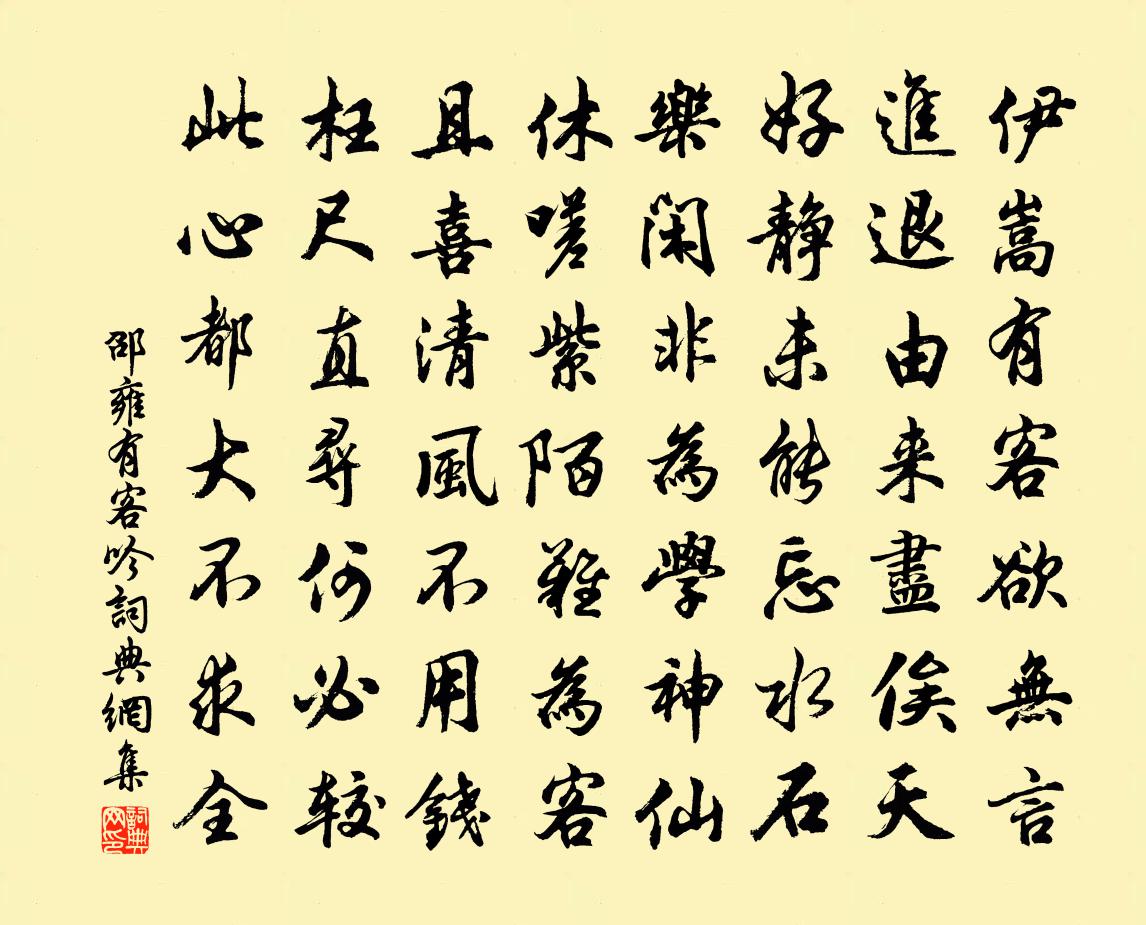 伊嵩有客欲無言
進退由来盡俟天
好静未能忘水石
樂閑非為學神仙
休嗟紫陌難為客
且喜清風不用錢
枉尺直尋何必較
此心都大不求全
邵雍有客吟詞典網集
詞典網印